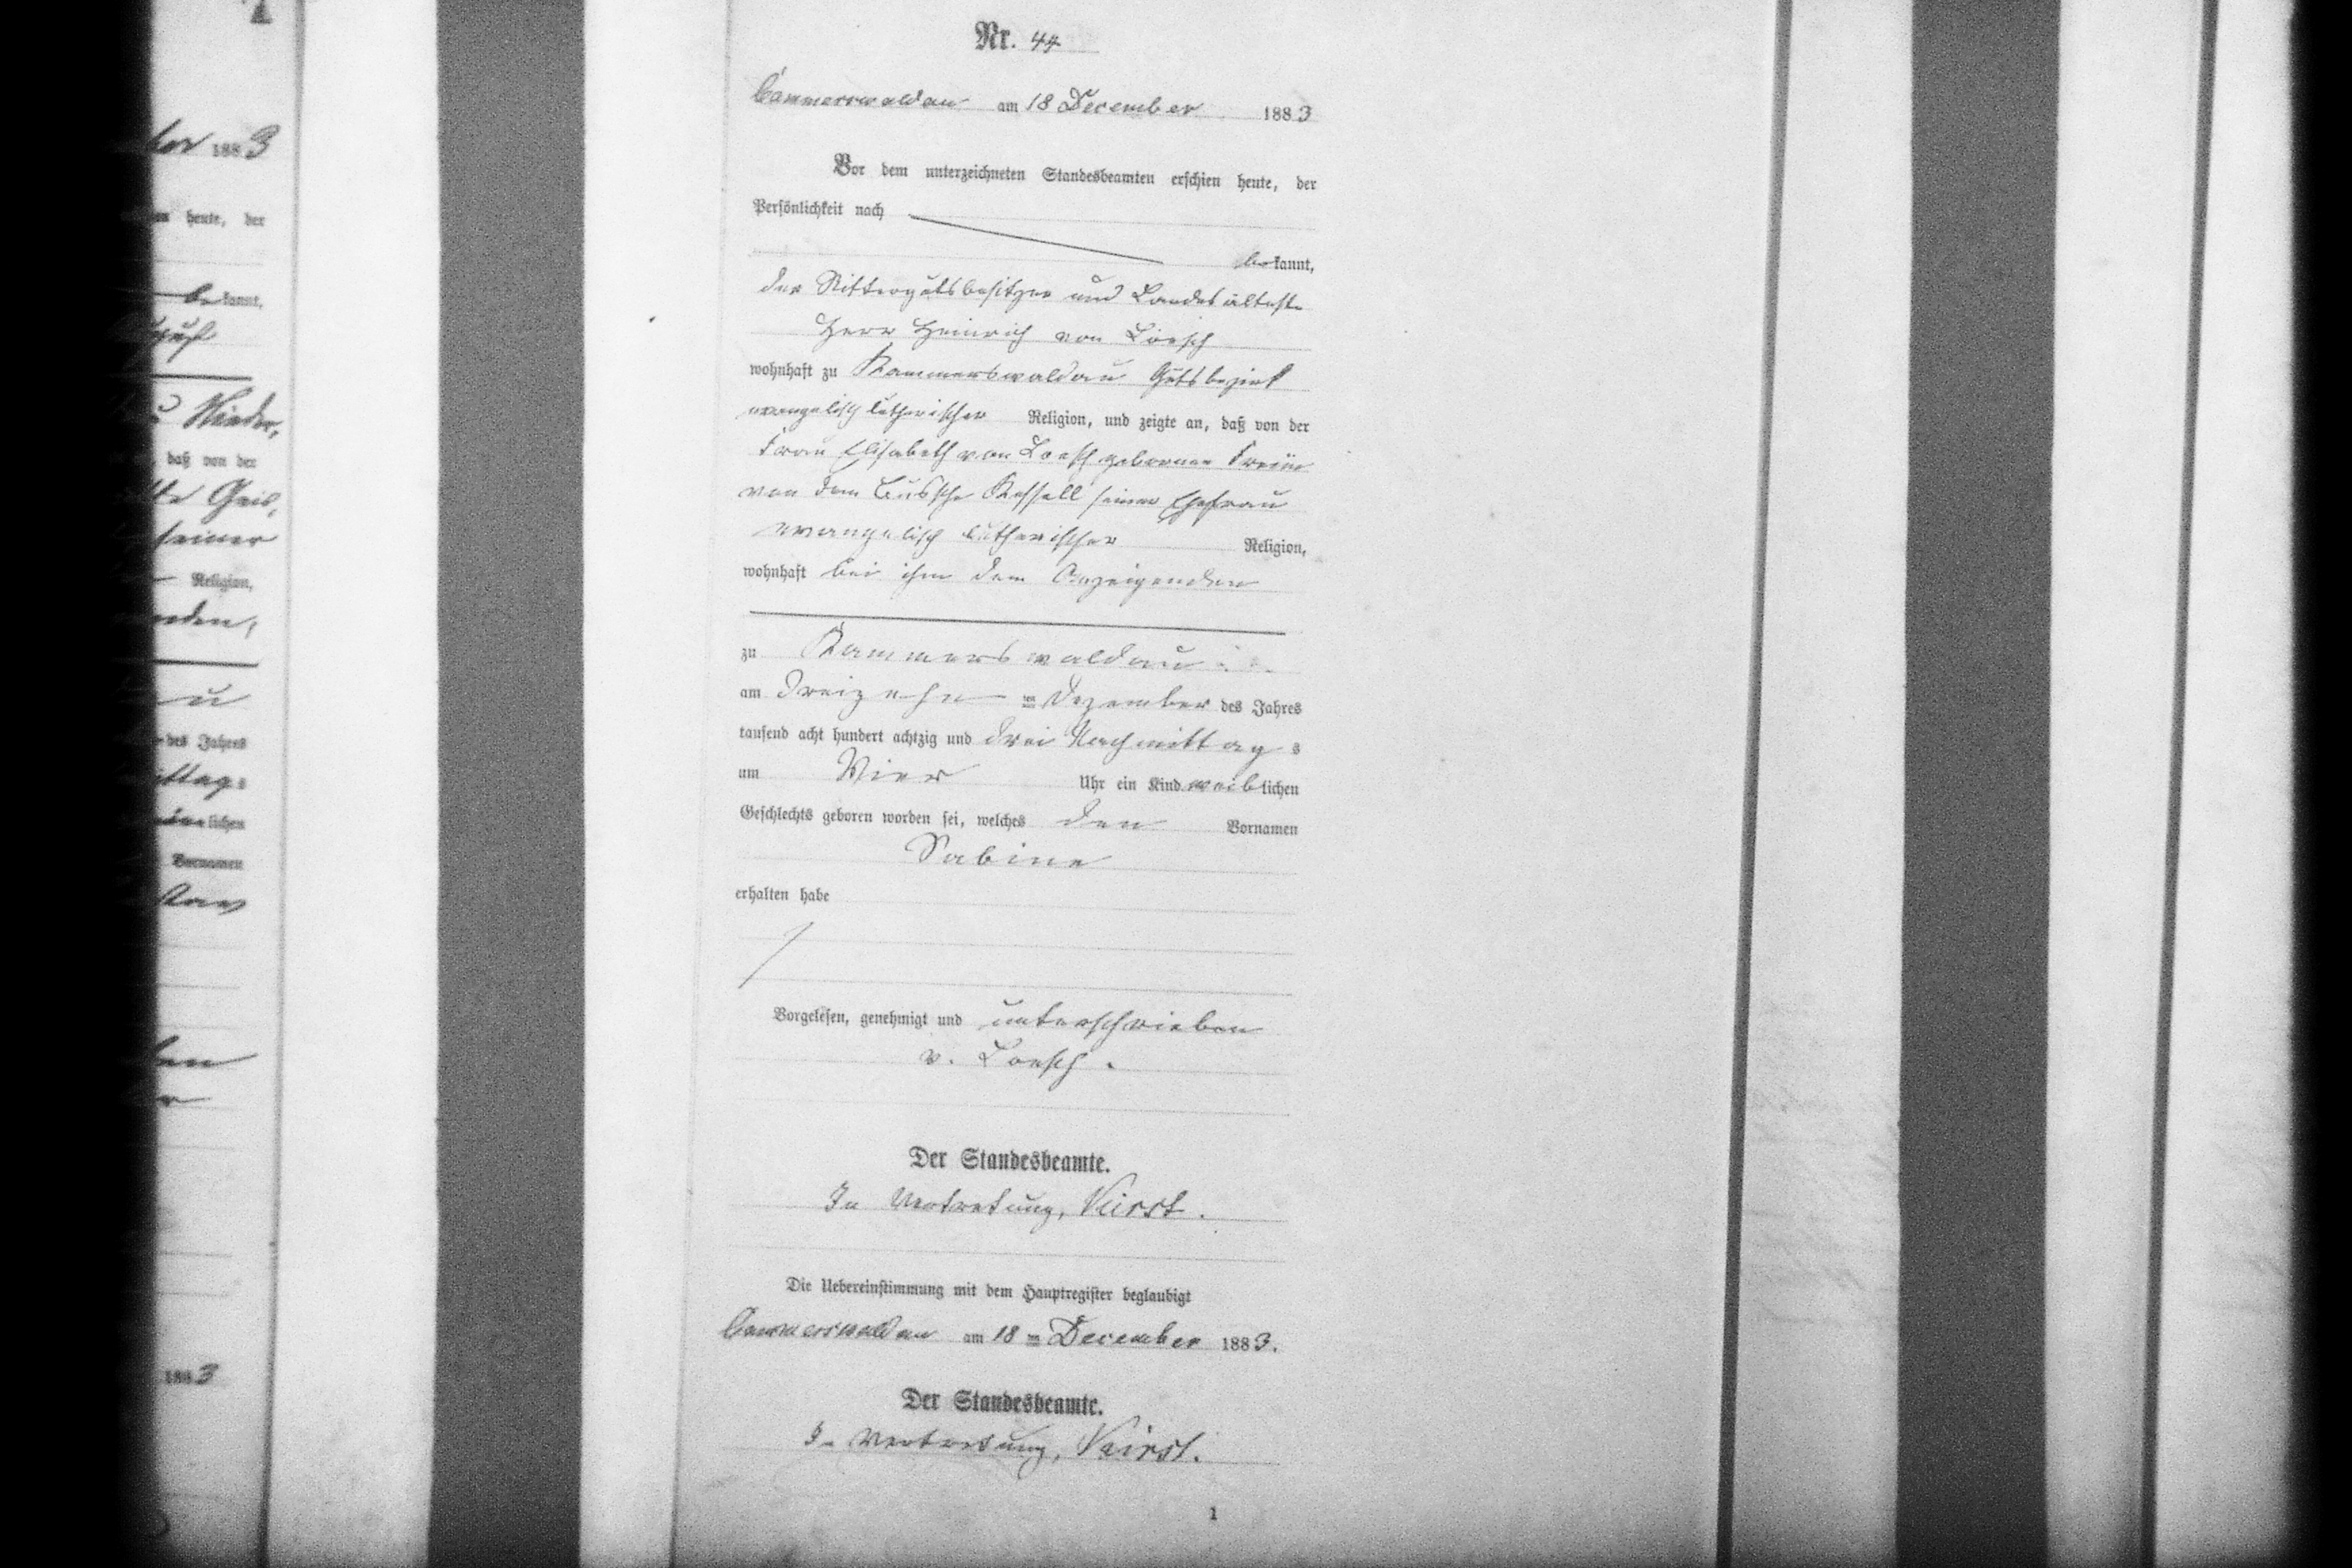 Nr. 44
Cammerswaldau am 18 December 1883
Vor dem unterzeichneten Standesbeamten erschien heute, der
Persönlichkeit nach
bekannt,
der Rittergutsbesitzer und Landesälteste
Herr Heinrich von Loesch
wohnhaft zu Kammerswaldau Gutsbezirk
evangelisch lutherischer Religion, und zeigte an, daß von der
Frau Elisabeth von Loesch geborenen Freiin
von dem Bussche Kessell seiner Ehefrau
evangelisch lutherischer Religion,
wohnhaft bei ihm dem Anzeigenden
zu Kammerswaldau
am dreizehnten Dezember des Jahres
tausend acht hundert achtzig und drei Nachmittags
um Vier Uhr ein Kind weiblichen
Geschlechts geboren worden sei, welches den Vornamen
Sabine
erhalten habe
Vorgelesen, genehmigt und unterschrieben
v. Loesch.
Der Standesbeamte.
In Vertretung,
Die Uebereinstimmung mit dem Hauptregister beglaubigt
Cammerswaldau am 18ten December 1883.
Der Standesbeamte.
In Vertretung,
1